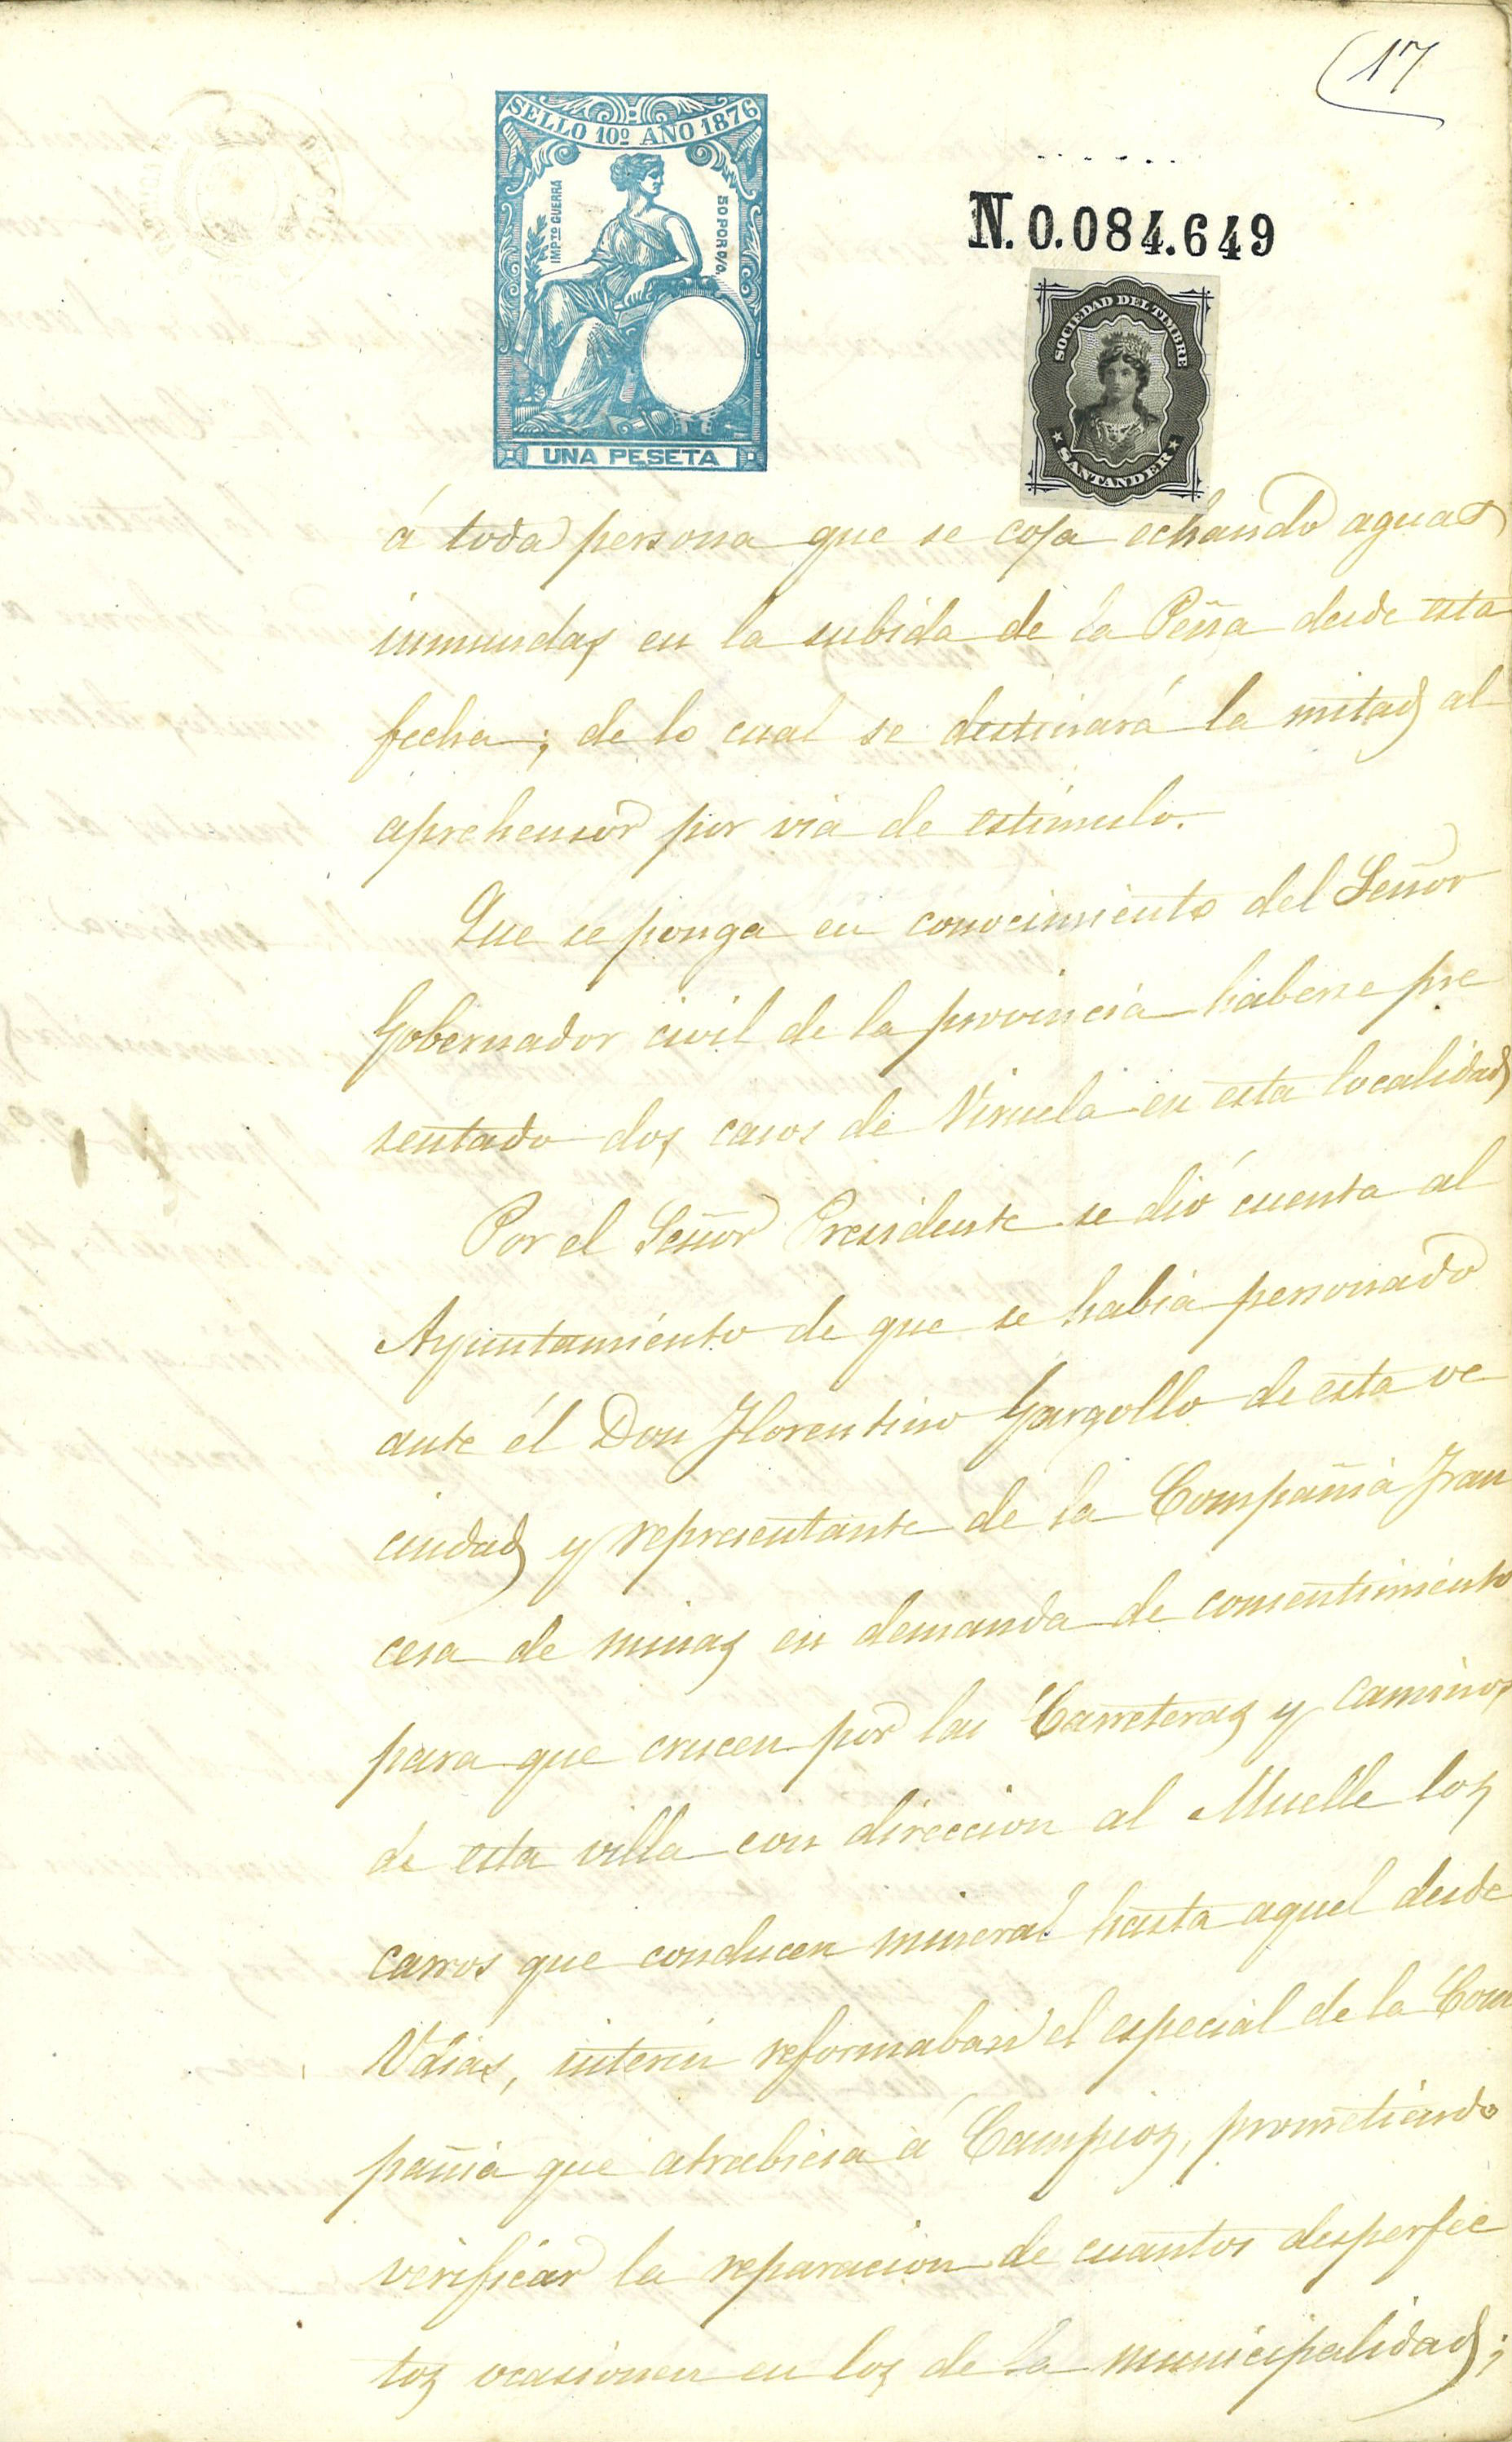 (17
SELLO 10º AÑO 1876
IMPTO GUERRA
50 POR 0/0.
UNA PESETA
N. 0.084.649
SOCIEDAD DEL TIMBRE
SANTANDER
á toda persona que se coja echando aguas
inmundas en la subida de la Peña desde esta
fecha; de lo cual se destinará la mitad al
aprehensor por via de estímulo.
Que se ponga en conocimiento del Señor
Gobernador civil de la provincia haberse pre
sentado dos casos de Viruela en esta localidad
Por el Señor Presidente se dió cuenta al
Ayuntamiento de que se habia personado
ante él Don Florentino Gargollo de esta ve
cindad y representante de la Compañia Fran
cesa de minas en demanda de consentimiento
para que crucen por las Carreteras y caminos
de esta villa con direccion al Muelle los
carros que conducen mineral hasta aquel desde
Udias, interin reformaban el especial de la Com
pañia que atrabiesa á Campios, prometiendo
verificar la reparacion de cuantos desperfec
tos ocasionen en los de la municipalidad;